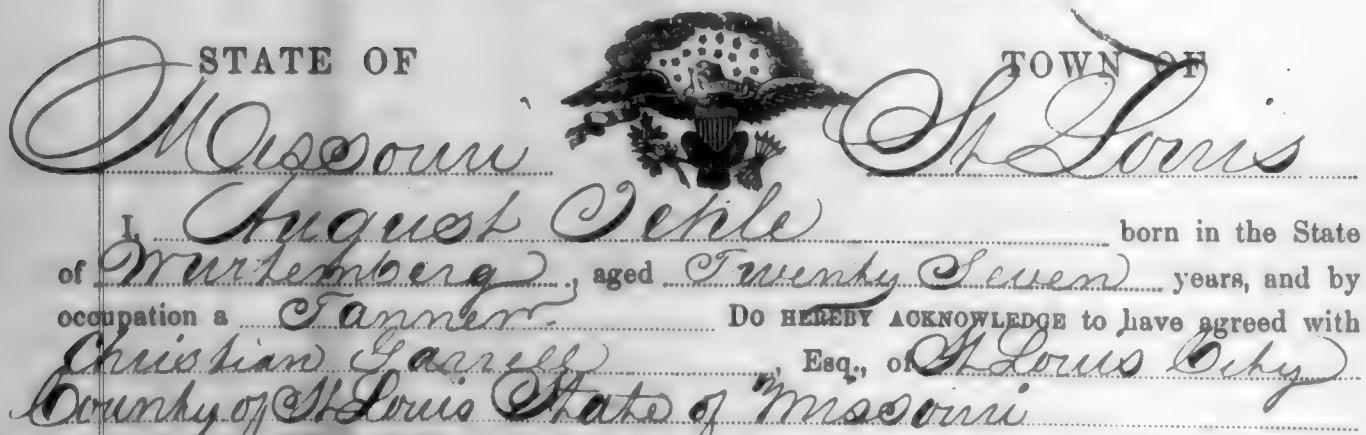 STATE OF TOWN OF
Missouri St Louis
I, August Oehle born in the State
of Wurtemberg, aged Twenty Seven years, and by
occupation a Tanner. Do HEREBY ACKNOWLEDGE to have agreed with
Christian , Esq., of St Louis City
County of St Louis State of Missouri